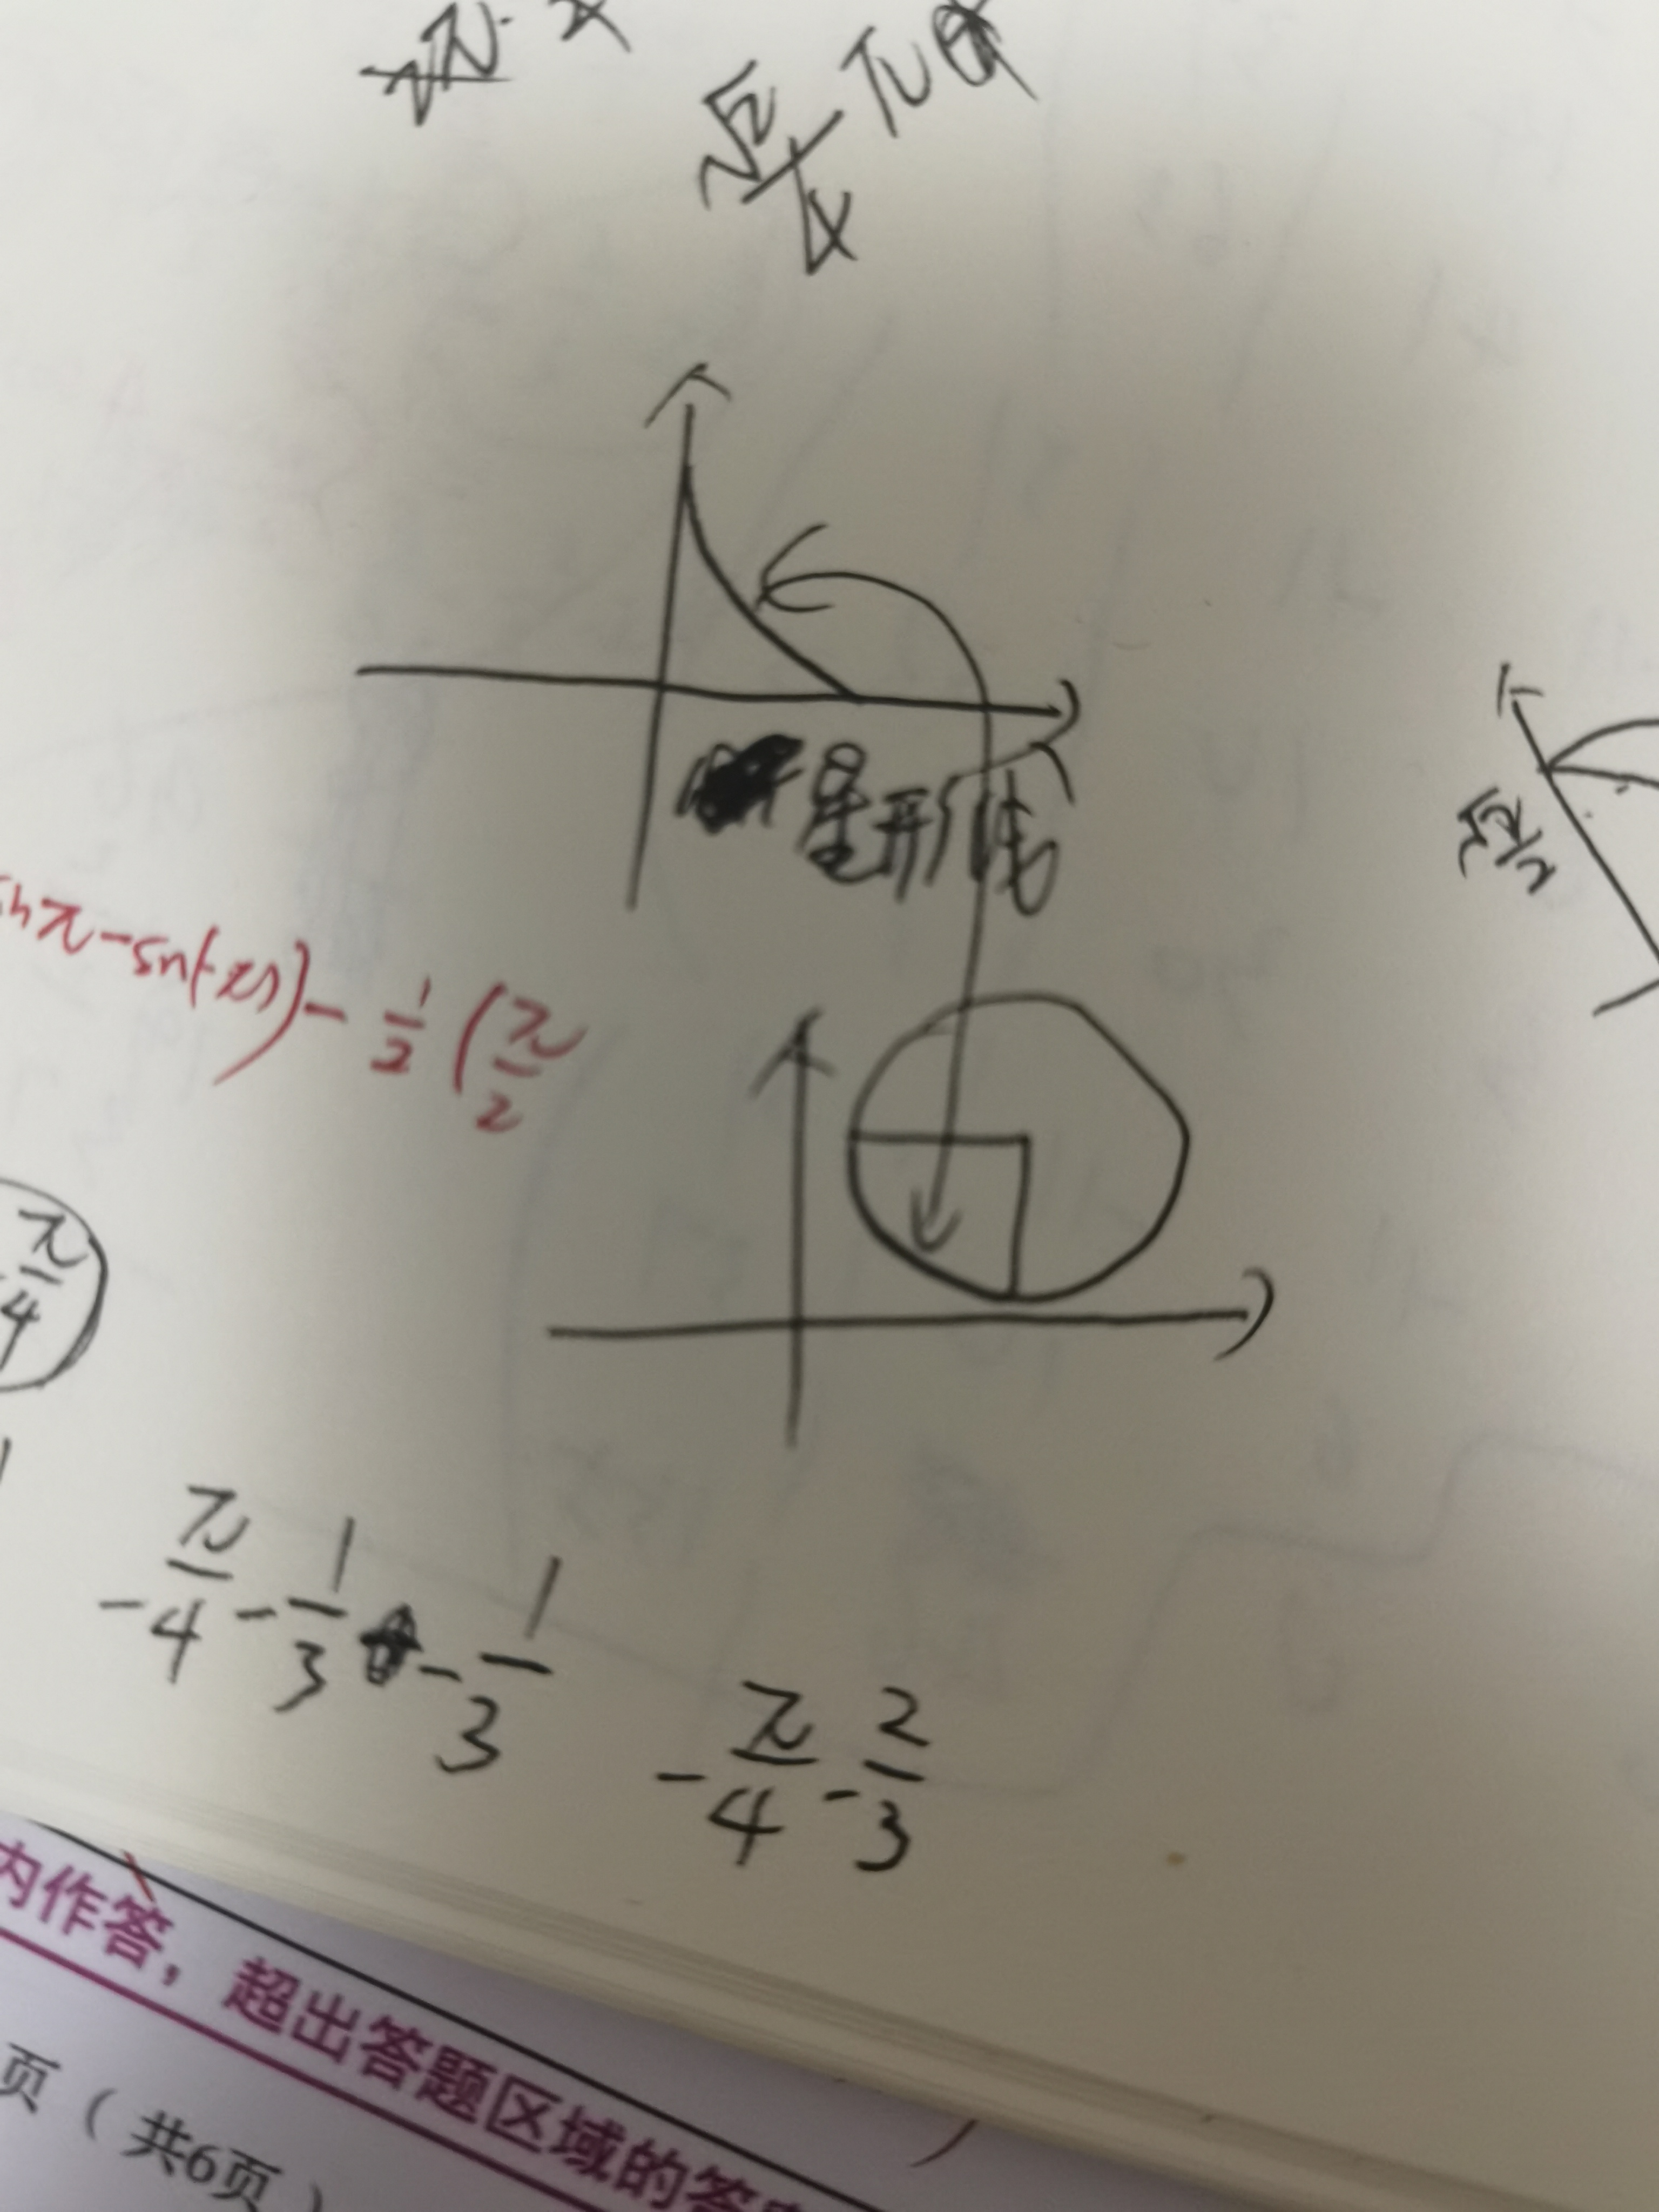 √2/4 π
星形线
π - sin(-π)) - 1/2 (π/2
√2/2
π/4
-π/4 - 1/3 - 1/3
-π/4 - 2/3
内作答，超出答题区域的答
页（共6页）